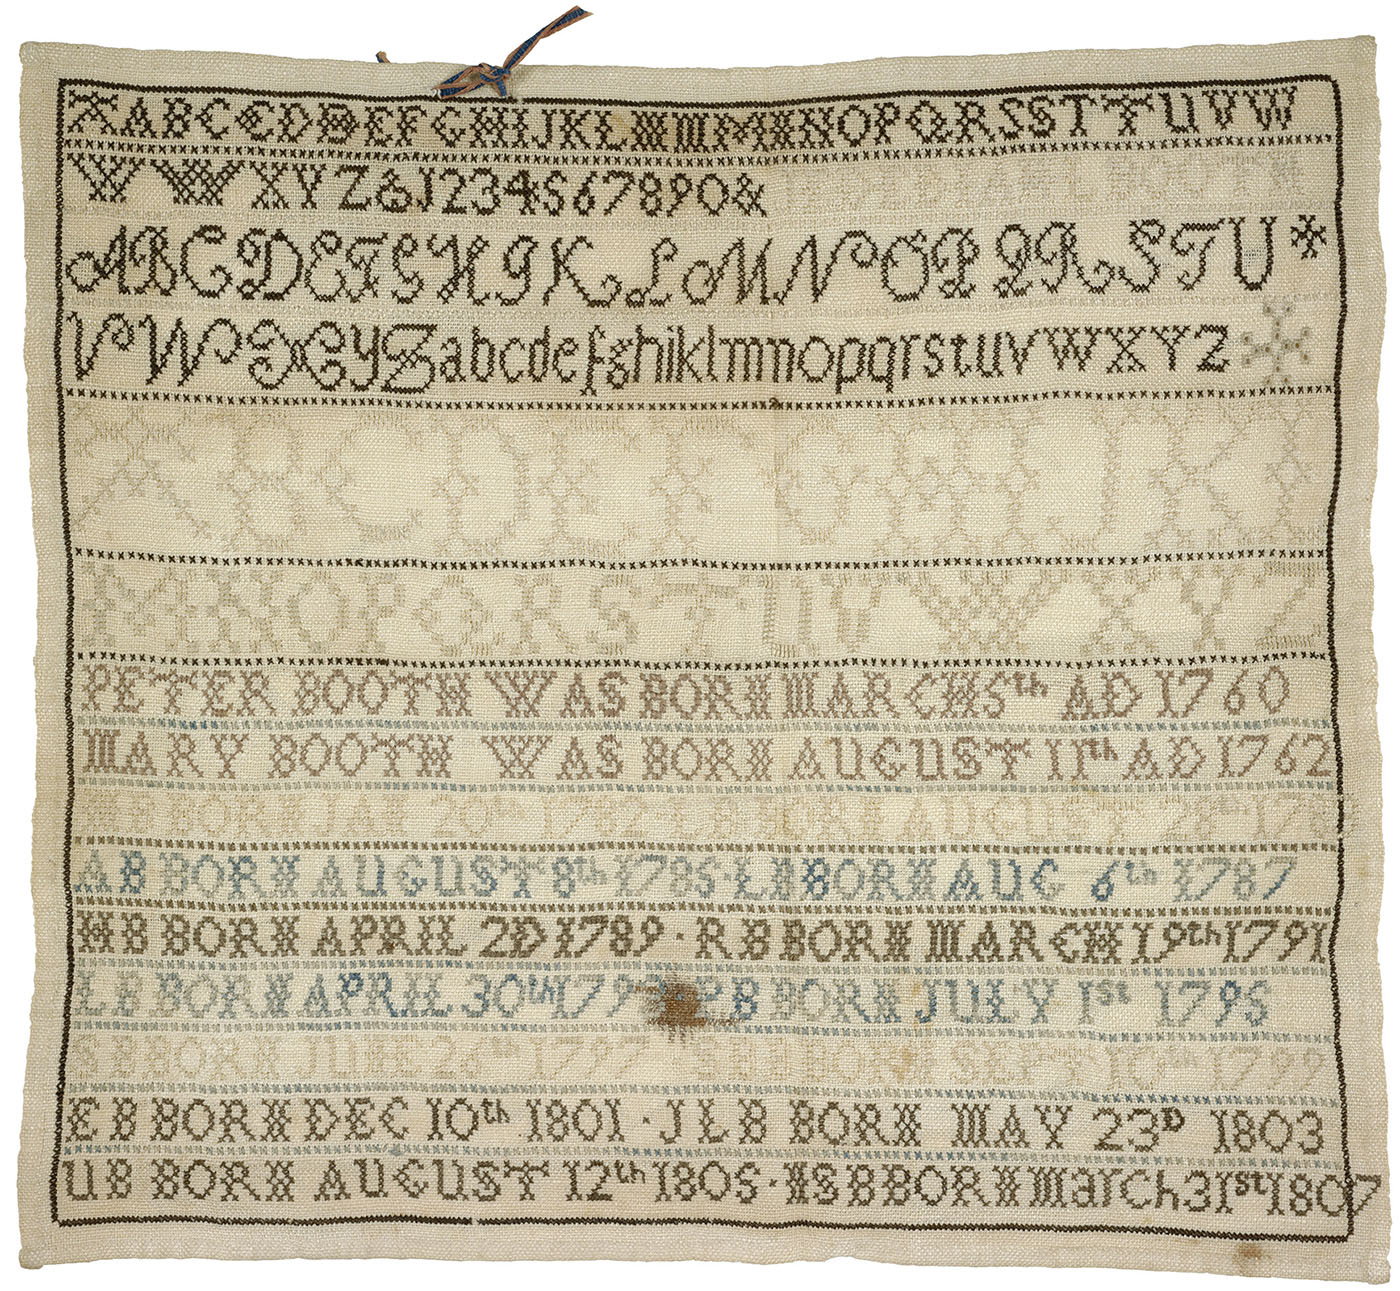 AABCCDDEFGHIJKLMMMNNOPQRSSTTUVW
WWXYZ&1234567890&
ABCDEFGHIKLMNOPQRSTU
VWXYZabcdefghiklmnopqrstuvwxyz
ABCDEFGHIJK
MNOPQRSTUVWXYZ
PETER BOOTH WAS BORN MARCH 5th AD 1760
MARY BOOTH WAS BORN AUGUST 11th AD 1762
BORN JAN 20th BORN AUGUST
AB BORN AUGUST 8th 1785·LB BORN AUG 6th 1787
HB BORN APRIL 2D 1789·RB BORN MARCH 19th 1791
LB BORN APRIL 30th 1793·PB BORN JULY 1st 1795
SB BORN JUNE 1797 BORN SEPT 10th 1799
EB BORN DEC 10th 1801·JLB BORN MAY 23D 1803
UB BORN AUGUST 12th 1805·NSB BORN March 31st 1807